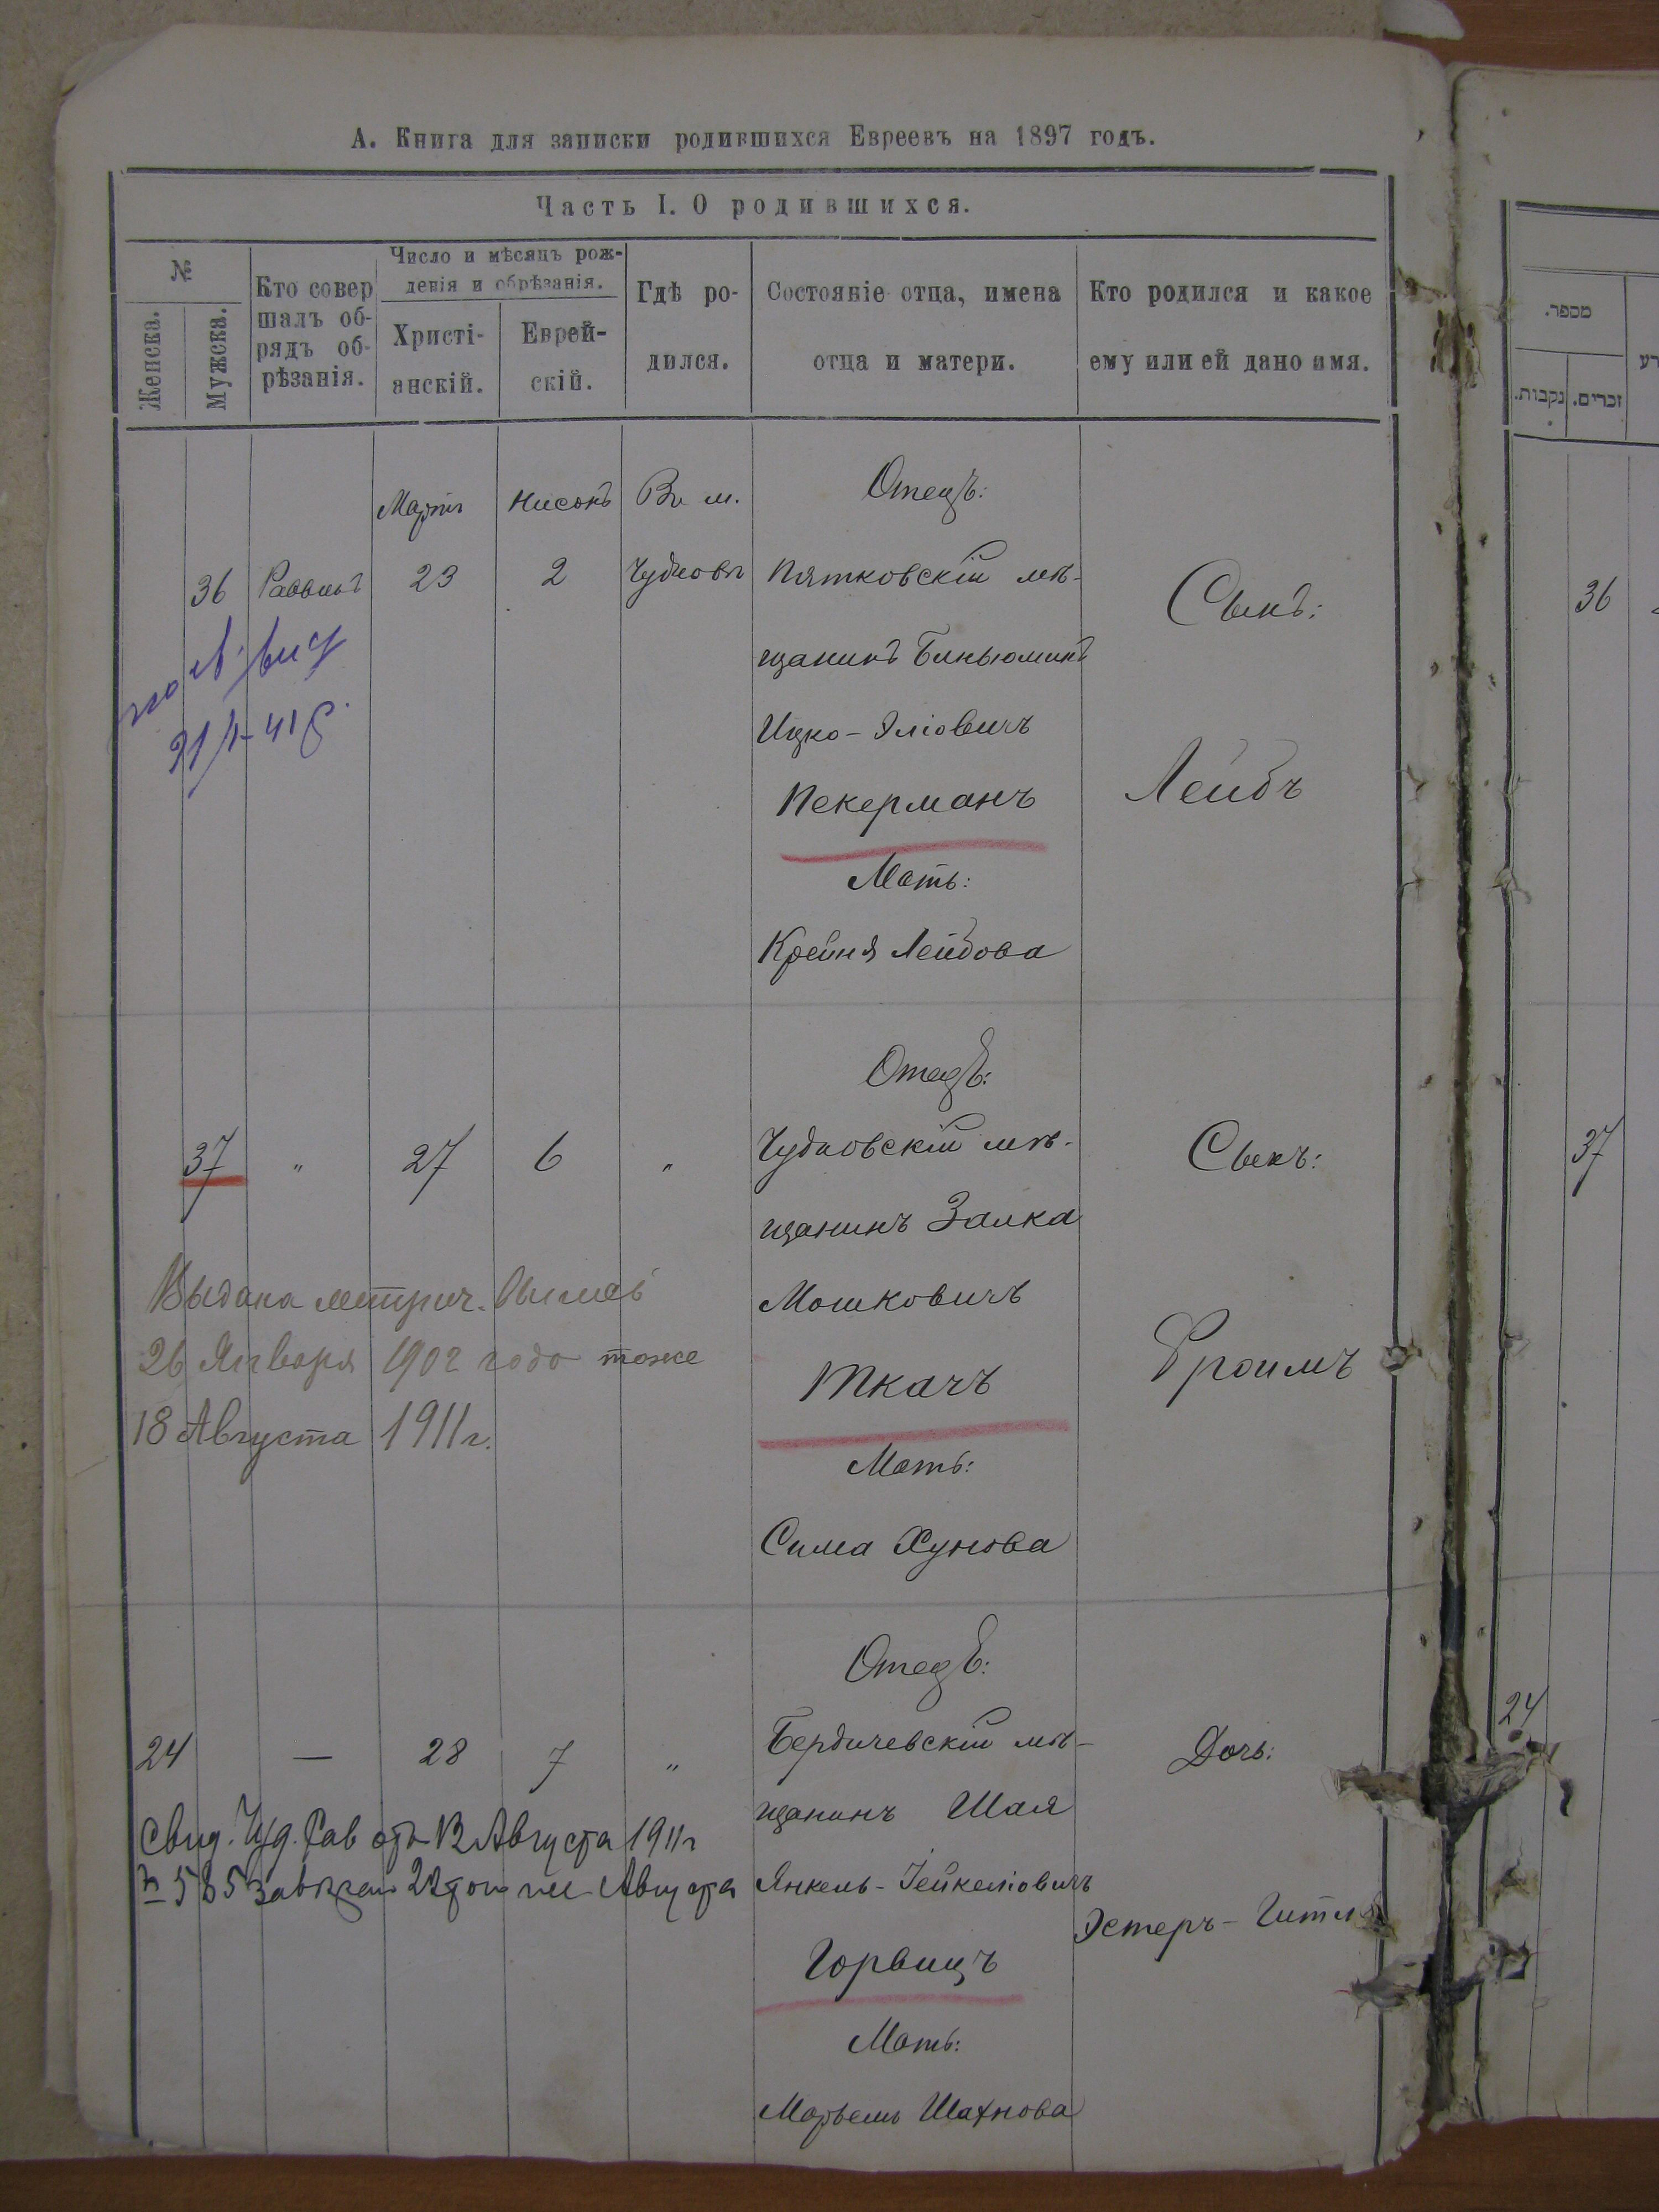 А. Книга для записки родившихся Евреевъ на 1897 годъ.
Часть I. О родившихся.
№
Женска.
Мужска.
Кто совер
шалъ об-
рядъ об-
рѣзанія.
Число и мѣсяцъ рож-
денія и обрѣзанія.
Христі-
анскій.
Еврей-
скій.
Гдѣ ро-
дился.
Состояніе отца, имена
отца и матери.
Кто родился и какое
ему или ей дано имя.
מספר.
נקבות.
זכרים.
Мартъ
Нисонъ
Въ м.
Отецъ:
36
Раввинъ
23
2
Чудновѣ
Пятковскій мѣ-
щанинъ Биньюминъ
Ицко-Эліовичъ
Пекерманъ
Мать:
Крейня Лейбова
Сынъ:
Лейбъ
36
21/I-41
Отецъ:
37
"
27
6
"
Чудновскій мѣ-
щанинъ Залка
Мошковичъ
Ткачъ
Мать:
Сима Хунова
Сынъ:
Фроимъ
37
Выдана метрич. выпись
26 Января 1902 года тоже
18 Августа 1911 г.
Отецъ:
24
—
28
7
"
Бердичевскій мѣ-
щанинъ Шая
Янкель-Іейкеліовичъ
Горвицъ
Мать:
Марьемъ Шахнова
Дочь:
Эстеръ-Гитля
24
Свид. Чуд. Рав отъ 12 Августа 1911 г
№ 585 22 Августа